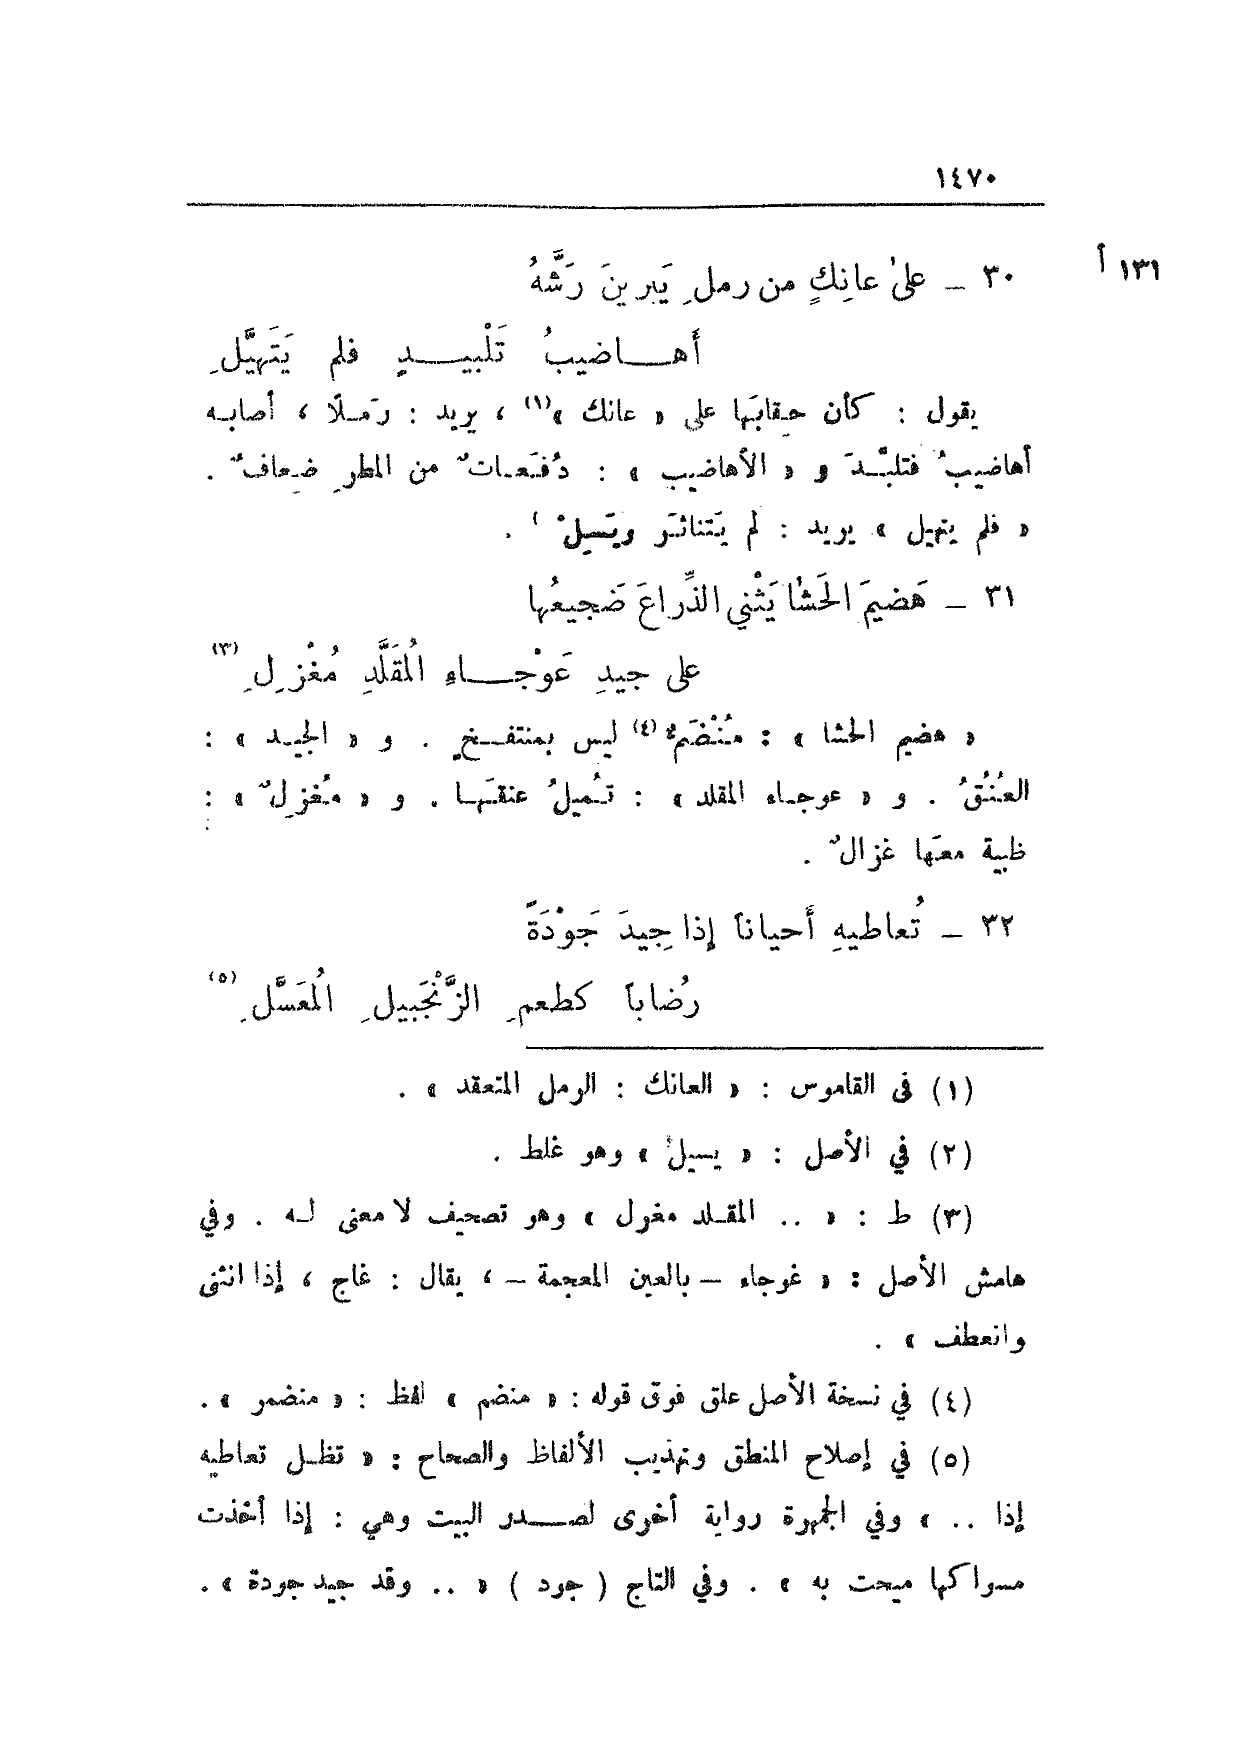 ١٤٧٠
١٣١ أ
٣٠ ـ علىٰ عانِكٍ من رملِ يَبرينَ رَشَّهُ
أَهـاضيبُ تَلْبيـدٍ فلم يَتَهيَّلِ
يقول : كأن حقابَها على « عانك »(١) ، يريد : رَمـلًا ، أصابـه
أهاضيبُ فتلبَّـدَ و « الأهاضيب » : دُفَعـاتٌ من المطرِ ضِعافٌ .
« فلم يتهيل » يريد : لم يَتناثَر ويَسيلْ .
٣١ ـ هَضيمَ الحَشٰا يَثْني الذِّراعَ ضَجيعُها
على جيدِ عَوْجـاءِ الُمقَلَّدِ مُغْزِلِ (٣)
« هضيم الحشا » : مُنْضَمٌّ (٤) ليس بمنتفـخٍ . و « الجيـد » :
العُنُقُ . و « عوجـاء المقلد » : تُميلُ عنقَهـا . و « مُغزِلٌ » :
ظبية معَها غزالٌ .
٣٢ ـ تُعاطيهِ أَحياناً إذا جِيدَ جَوْدَةً
رُضاباً كطعمِ الزَّنْجَبيلِ الُمعَسَّلِ (٥)
(١) في القاموس : « العانك : الرمل المتعقد » .
(٢) في الأصل : « يسيلُ » وهو غلط .
(٣) ط : « .. المقـلد مغرل » وهو تصحيف لا معنى لـه . وفي
هامش الأصل : « غوجاء – بالغين المعجمة – ، يقال : غاج ، إذا انثنى
وانعطف » .
(٤) في نسخة الأصل علق فوق قوله : « منضم » لفظ : « منضمر » .
(٥) في إصلاح المنطق وتهذيب الألفاظ والصحاح : « تظـل تعاطيه
إذا .. » وفي الجمهرة رواية أخرى لصـدر البيت وهي : إذا أخذت
مسواكها ميحت به » . وفي التاج ( جود ) « .. وقد جيد جودة » .